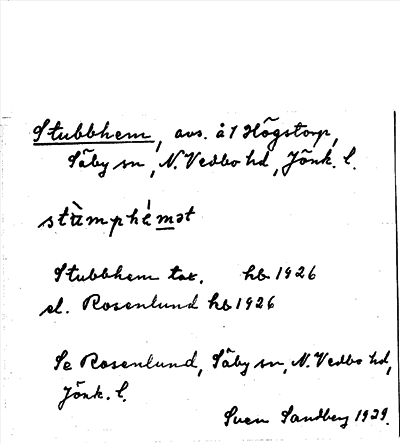 Stubbhem, avs. å 1 Högstorp,
Säby sn, N. Vedbo hd, Jönk. l.
Stubbhem tax. hb 1926
el. Rosenlund hb 1926
Se Rosenlund, Säby sn, N. Vedbo hd,
Jönk. l.
Sven Sandberg 1929.